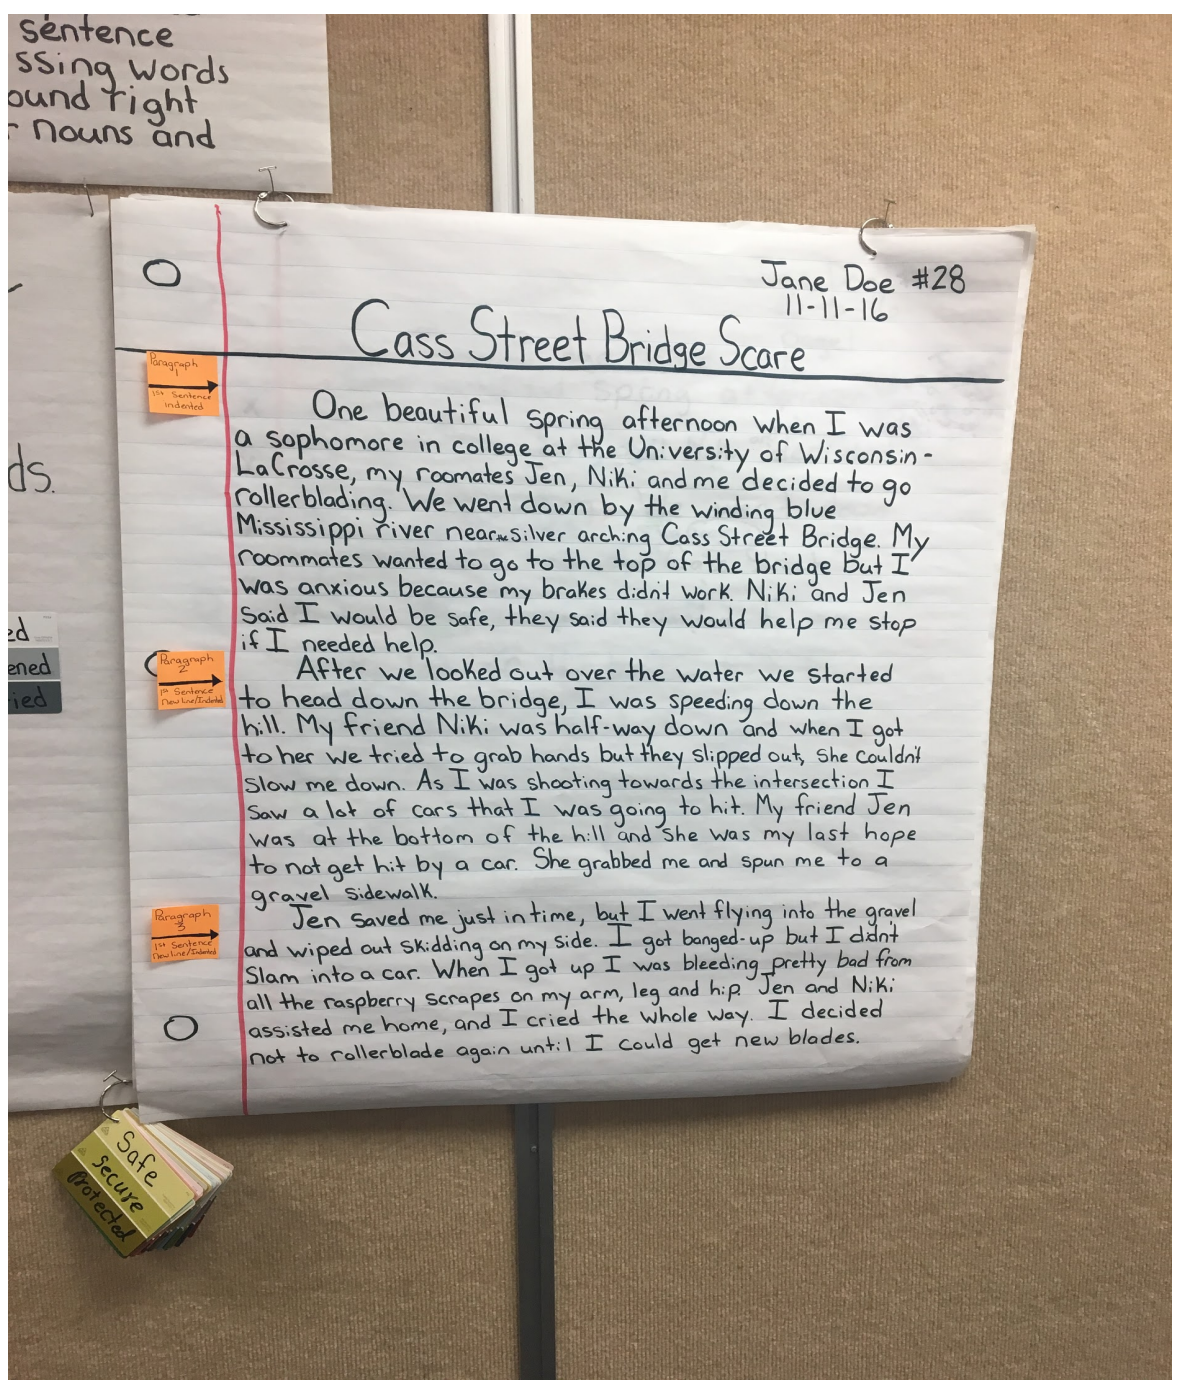 sentence
ssing words
ound right
r nouns and
ds.
ed
ened
ied
Jane Doe #28
11-11-16
Cass Street Bridge Scare
Paragraph
1
1st Sentence
indented
One beautiful spring afternoon when I was
a sophomore in college at the University of Wisconsin-
LaCrosse, my roomates Jen, Niki and me decided to go
rollerblading. We went down by the winding blue
Mississippi river near the silver arching Cass Street Bridge. My
roommates wanted to go to the top of the bridge but I
was anxious because my brakes didn't work. Niki and Jen
said I would be safe, they said they would help me stop
if I needed help.
Paragraph
2
1st Sentence
New line/Indented
After we looked out over the water we started
to head down the bridge, I was speeding down the
hill. My friend Niki was half-way down and when I got
to her we tried to grab hands but they slipped out, she couldn't
slow me down. As I was shooting towards the intersection I
saw a lot of cars that I was going to hit. My friend Jen
was at the bottom of the hill and she was my last hope
to not get hit by a car. She grabbed me and spun me to a
gravel sidewalk.
Paragraph
3
1st Sentence
New line/Indented
Jen saved me just in time, but I went flying into the gravel
and wiped out skidding on my side. I got banged-up but I didn't
slam into a car. When I got up I was bleeding pretty bad from
all the raspberry scrapes on my arm, leg and hip. Jen and Niki
assisted me home, and I cried the whole way. I decided
not to rollerblade again until I could get new blades.
Safe
secure
Protected